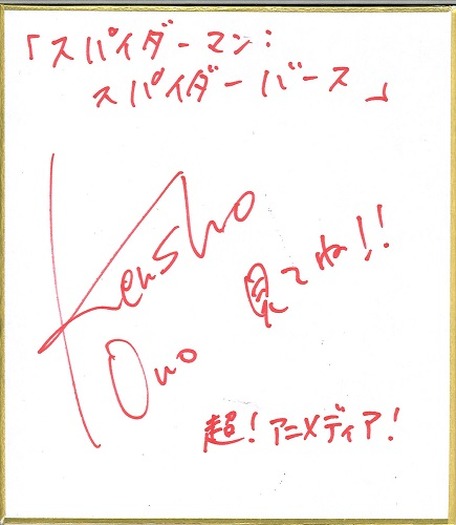 「スパイダーマン:
スパイダーバース」
Kensho
Ono
見てね!!
超!アニメディア!